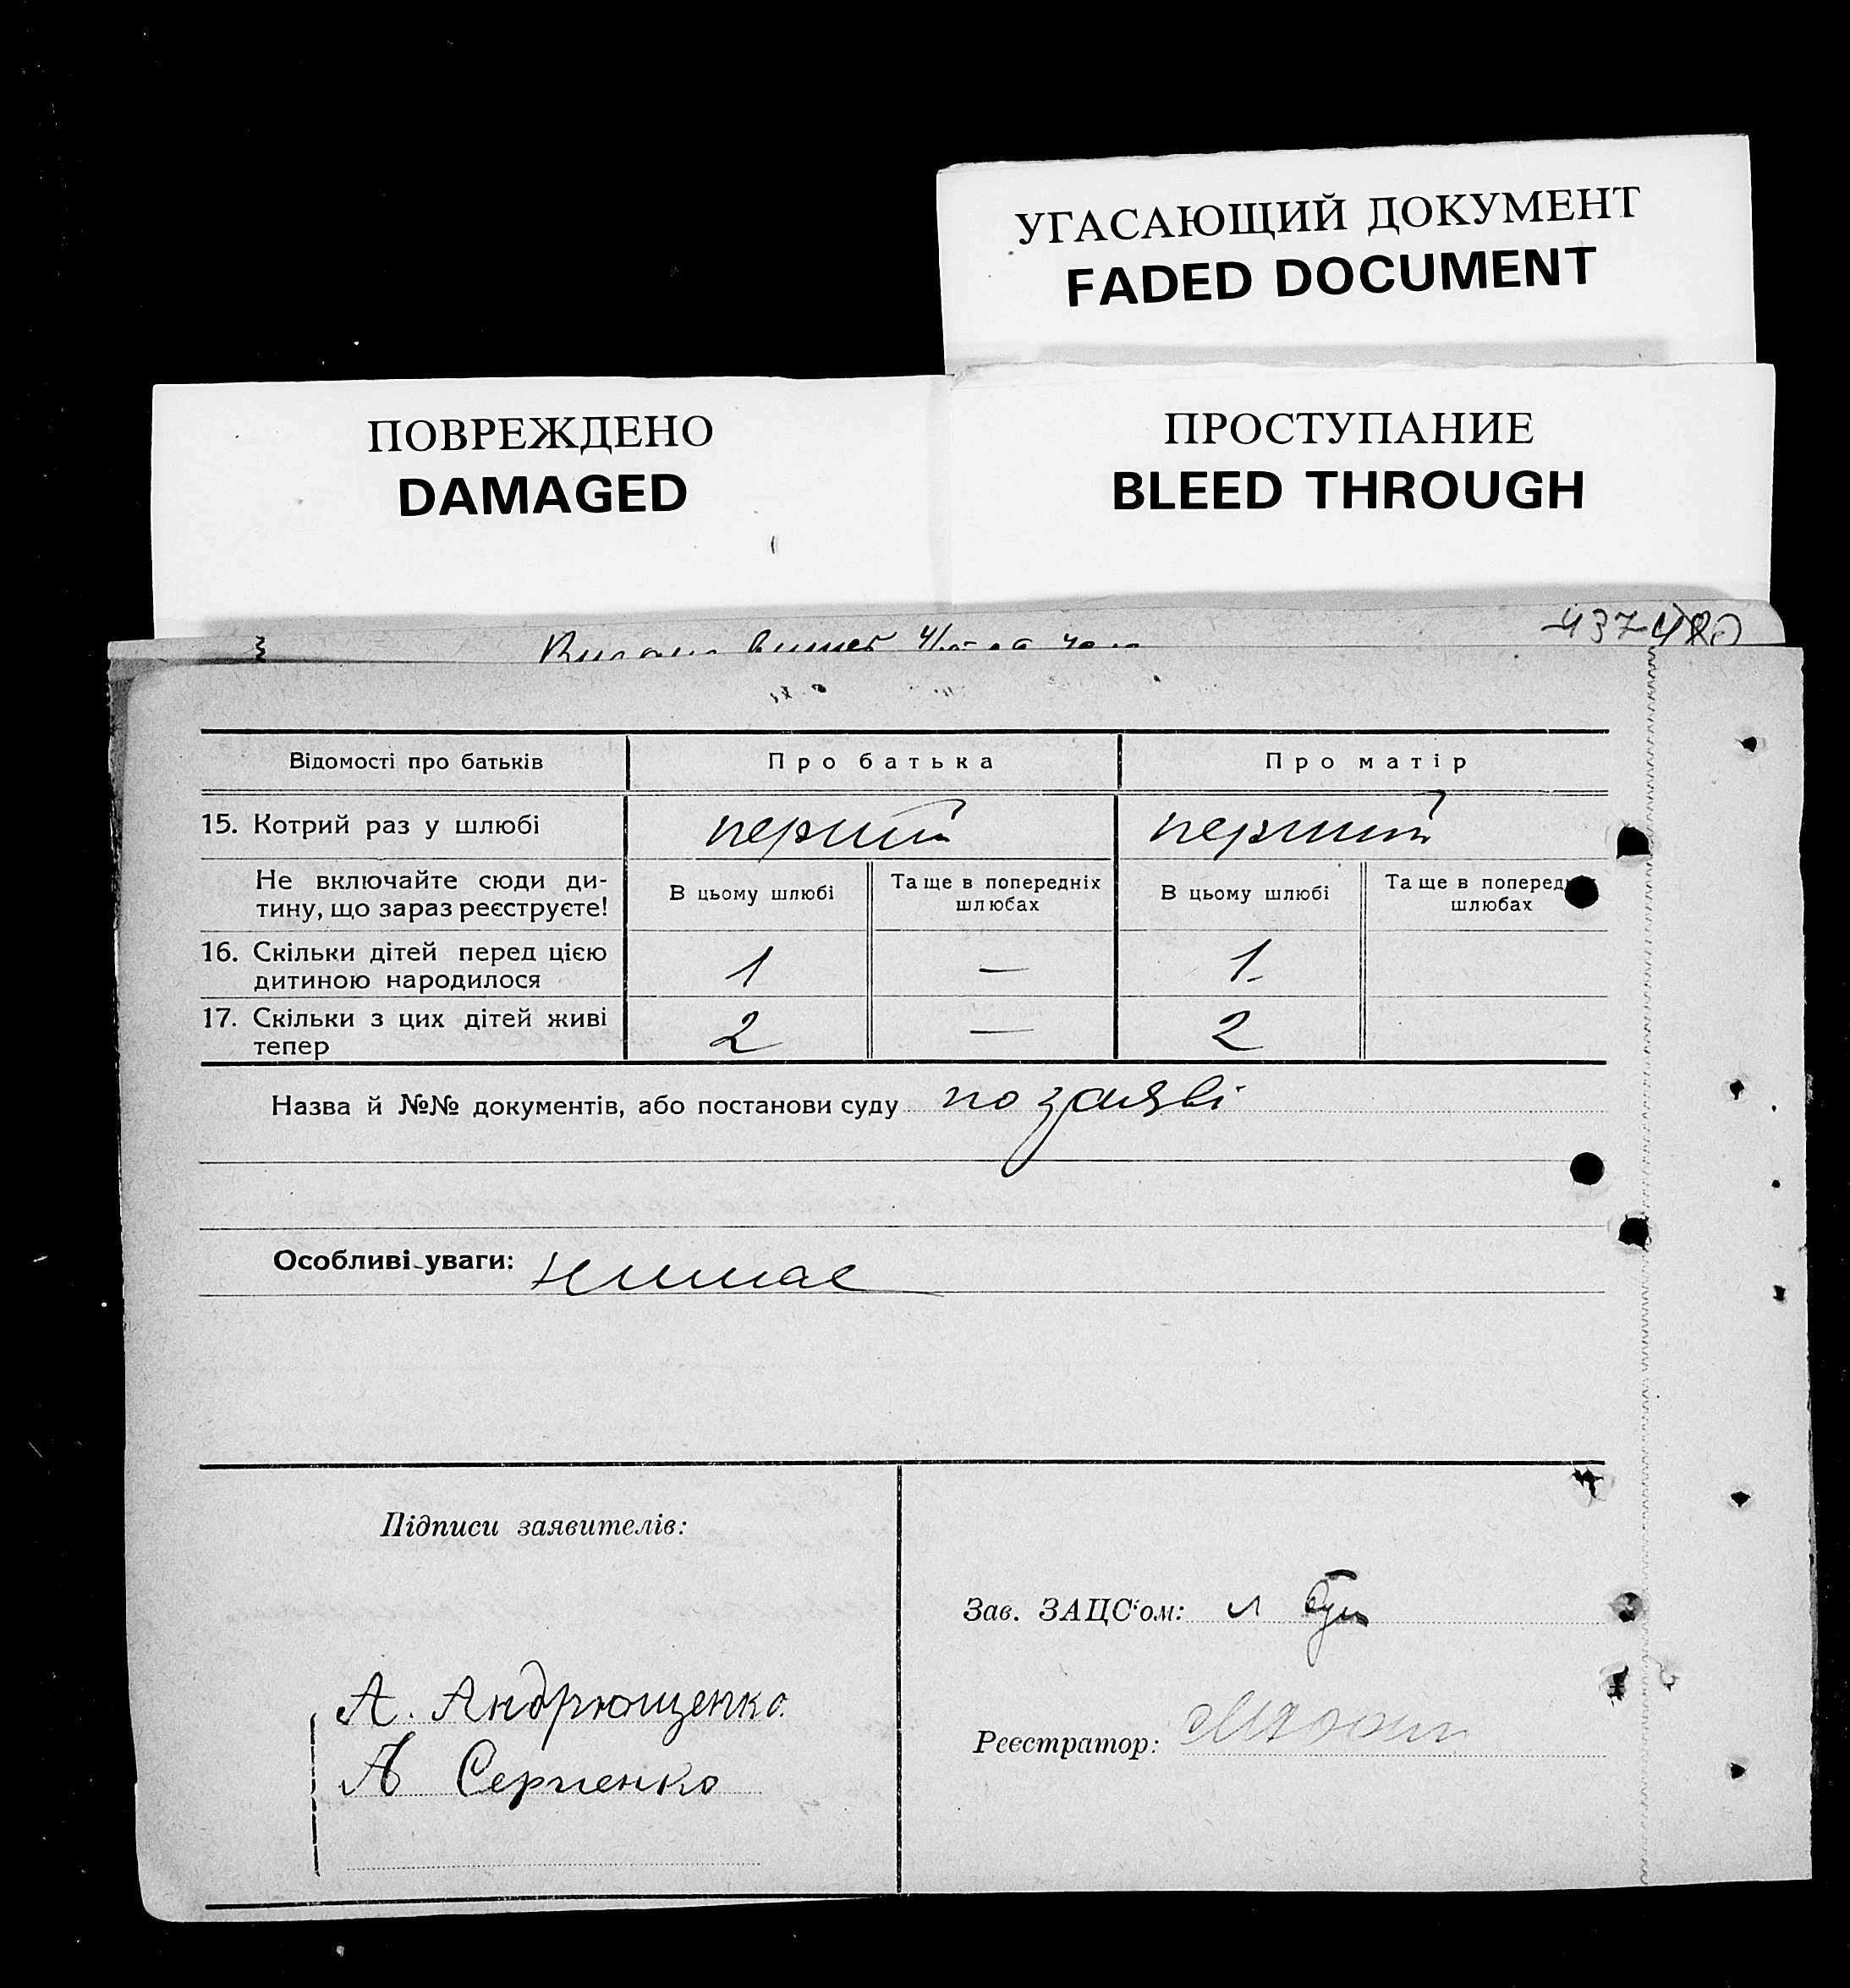 УГАСАЮЩИЙ ДОКУМЕНТ
FADED DOCUMENT
ПОВРЕЖДЕНО
DAMAGED
ПРОСТУПАНИЕ
BLEED THROUGH
Відомості про батьків
Про батька
Про матір
15. Котрий раз у шлюбі
перший
перший
Не включайте сюди ди-
тину, що зараз реєструєте!
В цьому шлюбі
Та ще в попередніх
шлюбах
В цьому шлюбі
Та ще в поперед
шлюбах
16. Скільки дітей перед цією
дитиною народилося
1
—
1
17. Скільки з цих дітей живі
тепер
2
—
2
Назва й №№ документів, або постанови суду по заяві
Особливі уваги: нимае
Підписи заявителів:
А. Андрющенко
А Сергиенко
Зав. ЗАЦС'ом:
Реєстратор: